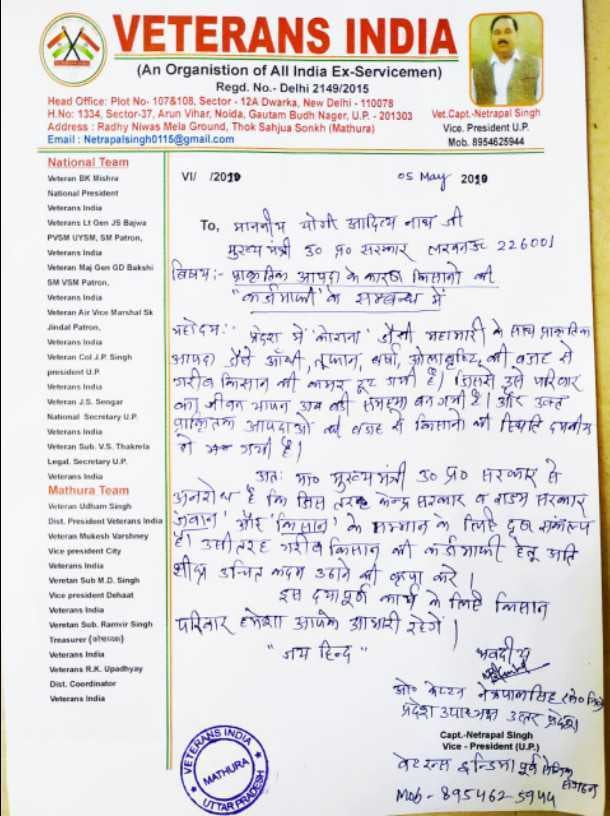 VETERANS INDIA
(An Organistion of All India Ex-Servicemen)
Regd. No.- Delhi 2149/2015
Head Office: Plot No- 107&108, Sector - 12A Dwarka, New Delhi - 110078
H.No: 1334, Sector-37, Arun Vihar, Noida, Gautam Budh Nager, U.P. - 201303
Address : Radhy Niwas Mela Ground, Thok Sahjua Sonkh (Mathura)
Email : Netrapalsingh0115@gmail.com
Vet.Capt.-Netrapal Singh
Vice. President U.P.
Mob. 8954625944
National Team
Veteran BK Mishra
National President
Veterans India
Veterans Lt Gen JS Bajwa
PVSM UYSM, SM Patron,
Veterans India
Veteran Maj Gen GD Bakshi
SM VSM Patron,
Veterans India
Veteran Air Vice Marshal Sk
Jindal Patron,
Veterans India
Veteran Col J.P. Singh
president U.P.
Veterans India
Veteran J.S. Sengar
National Secretary U.P.
Veterans India
Veteran Sub. V.S. Thakrela
Legal. Secretary U.P.
Veterans India
Mathura Team
Veteran Udham Singh
Dist. President Veterans India
Veteran Mukesh Varshney
Vice president City
Veterans India
Veretan Sub M.D. Singh
Vice president Dehaat
Veterans India
Veretan Sub. Ramvir Singh
Treasurer (कोषाध्यक्ष)
Veterans India
Veterans R.K. Upadhyay
Dist. Coordinator
Veterans India
VI/ /2019 05 May 2019
To, माननीय योगी आदित्य नाथ जी
मुख्य मंत्री उ० प्र० सरकार लखनऊ 226001
विषय :- प्राकृतिक आपदा के कारण किसानो की
"कर्जामाफी" के सम्बन्ध में
महोदय: प्रदेश में 'कोराना' जैसी महामारी के साथ प्राकृतिक
आपदा जैसे आँधी, तूफान, वर्षा, ओलावृष्टि की वजह से
गरीब किसान की कमर टूट गयी है। जिससे उसे परिवार
का जीवन यापन अब बडी समस्या बन गयी है। और उक्त
प्राकृतिक आपदाओ की वजह से किसानो की स्थिति दयनीय
हो गयी है।
अतः मा० मुख्य मंत्री उ० प्र० सरकार से
अनुरोध है कि जिस तरह केन्द्र सरकार व राज्य सरकार
'जवान' और 'किसान' के सम्मान के लिए दृढ संकल्प
है। उसी तरह गरीब किसान की कर्जामाफी हेतू अति
शीघ्र उचित कदम उठाने की कृपा करे।
इस दयापूर्ण कार्य के लिए किसान
परिवार हमेशा आपके आभारी रहेगें।
"जय हिन्द" भवदीय
ओ० केप्टन नेत्रपाल सिंह
प्रदेश उपाध्यक्ष उत्तर प्रदेश
Capt.-Netrapal Singh
Vice - President (U.P.)
वेटरन्स इन्डिया पूर्व सैनिक संगठन
Mob - 8954625944
VETERANS INDIA
MATHURA
UTTAR PRADESH